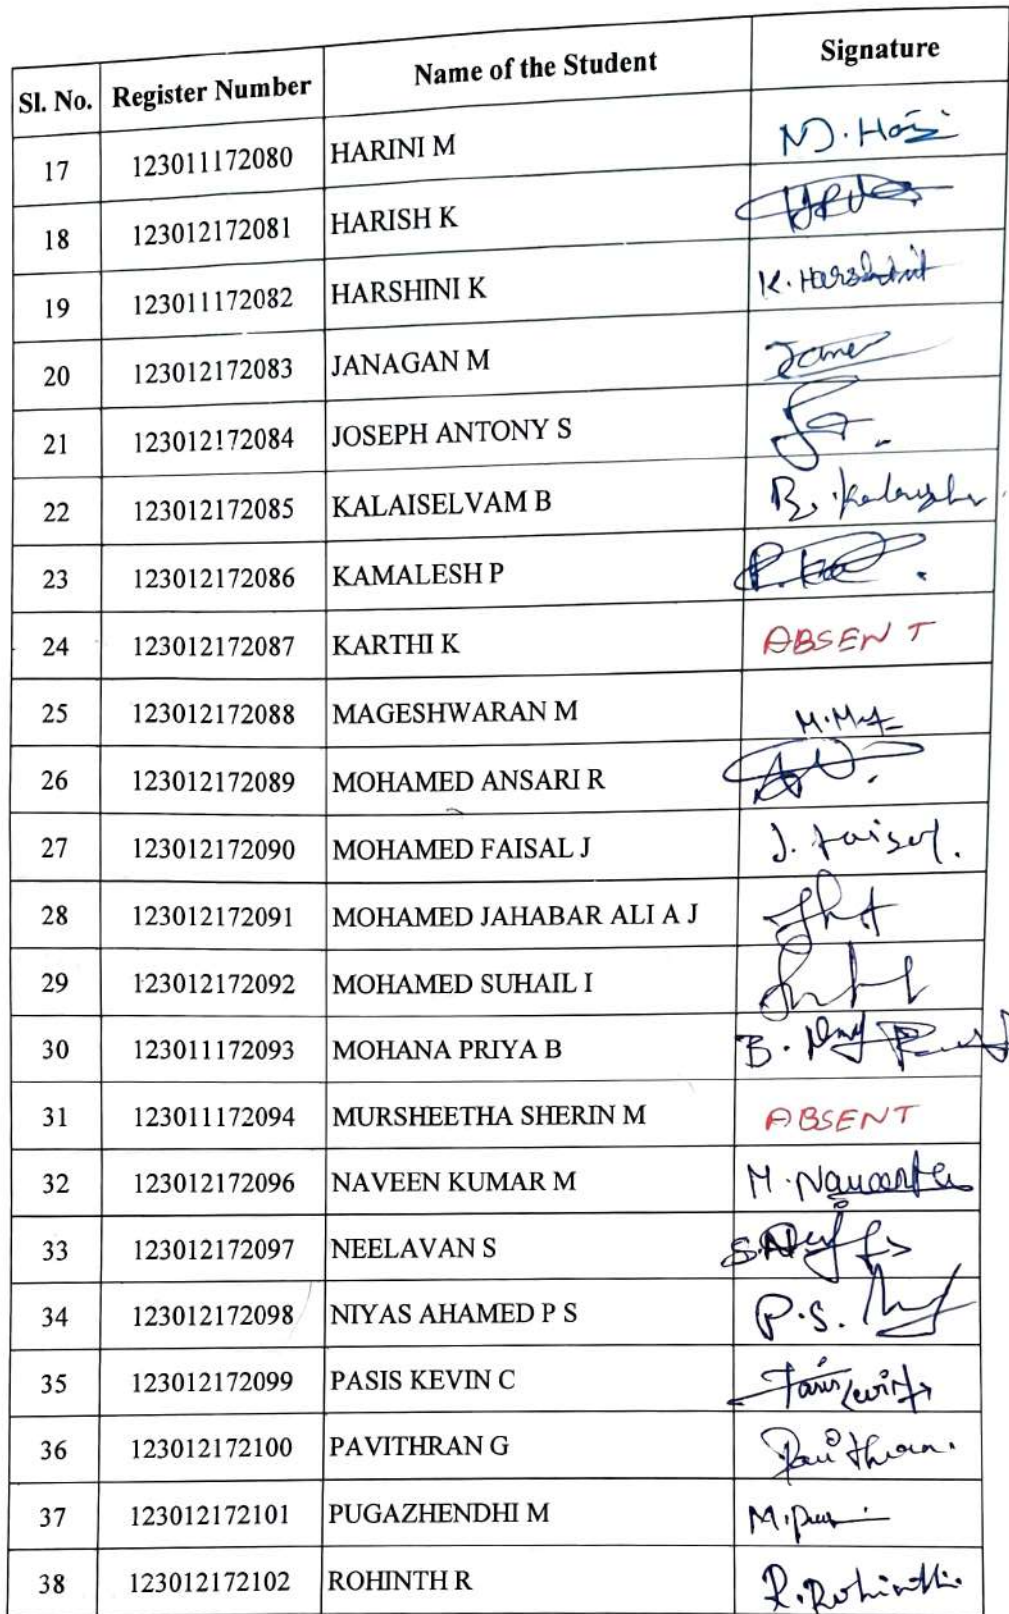 Sl. No. Register Number Name of the Student Signature
17 123011172080 HARINI M
18 123012172081 HARISH K
19 123011172082 HARSHINI K K. Harshini
20 123012172083 JANAGAN M
21 123012172084 JOSEPH ANTONY S
22 123012172085 KALAISELVAM B
23 123012172086 KAMALESH P
24 123012172087 KARTHI K ABSENT
25 123012172088 MAGESHWARAN M
26 123012172089 MOHAMED ANSARI R
27 123012172090 MOHAMED FAISAL J J. Faisal.
28 123012172091 MOHAMED JAHABAR ALI A J
29 123012172092 MOHAMED SUHAIL I
30 123011172093 MOHANA PRIYA B
31 123011172094 MURSHEETHA SHERIN M ABSENT
32 123012172096 NAVEEN KUMAR M
33 123012172097 NEELAVAN S
34 123012172098 NIYAS AHAMED P S P.S.
35 123012172099 PASIS KEVIN C
36 123012172100 PAVITHRAN G Pavithran.
37 123012172101 PUGAZHENDHI M
38 123012172102 ROHINTH R R. Rohinth.